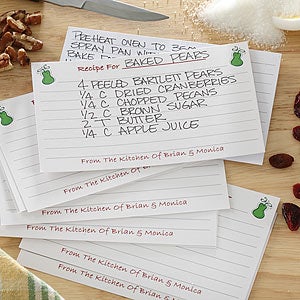 PREHEAT OVEN TO
SPRAY PAN
BAKE
Recipe For BAKED PEARS
4 PEELED BARTLETT PEARS
1/4 C DRIED CRANBERRIES
1/4 C CHOPPED PECANS
1/2 C BROWN SUGAR
2 T BUTTER
1/4 C APPLE JUICE
From The Kitchen Of Brian & Monica
From The Kitchen Of Brian & Monica
From The Kitchen Of Brian & Monica
From The Kitchen Of Brian & Monica
From The Kitchen Of Brian & Monica